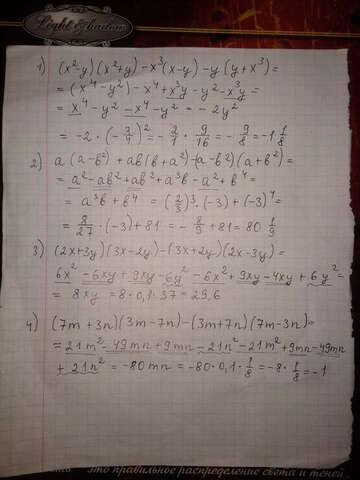 Light & shadow
1) (x²-y)(x²+y)-x³(x-y)-y(y+x³)=
=(x⁴-y²)-x⁴+x³y-y²-x³y=
=x⁴-y²-x⁴-y²=-2y²
=-2·(-3/4)²=-2/1·9/16=-9/8=-1 1/8
2) a(a-b²)+ab(b+a²)-(a-b²)(a+b²)=
=a²-ab²+ab²+a³b-a²+b⁴=
=a³b+b⁴=(2/3)³·(-3)+(-3)⁴=
=8/27·(-3)+81=-8/9+81=80 1/9
3) (2x+3y)(3x-2y)-(3x+2y)(2x-3y)=
6x²-6xy+9xy-6y²-6x²+9xy-4xy+6y²=
=8xy=8·0,1·37=29,6
4) (7m+3n)(3m-7n)-(3m+7n)(7m-3n)=
=21m²-49mn+9mn-21n²-21m²+9mn-49mn
+21n²=-80mn=-80·0,1·1/8=-8·1/8=-1
это правильное распределение света и теней